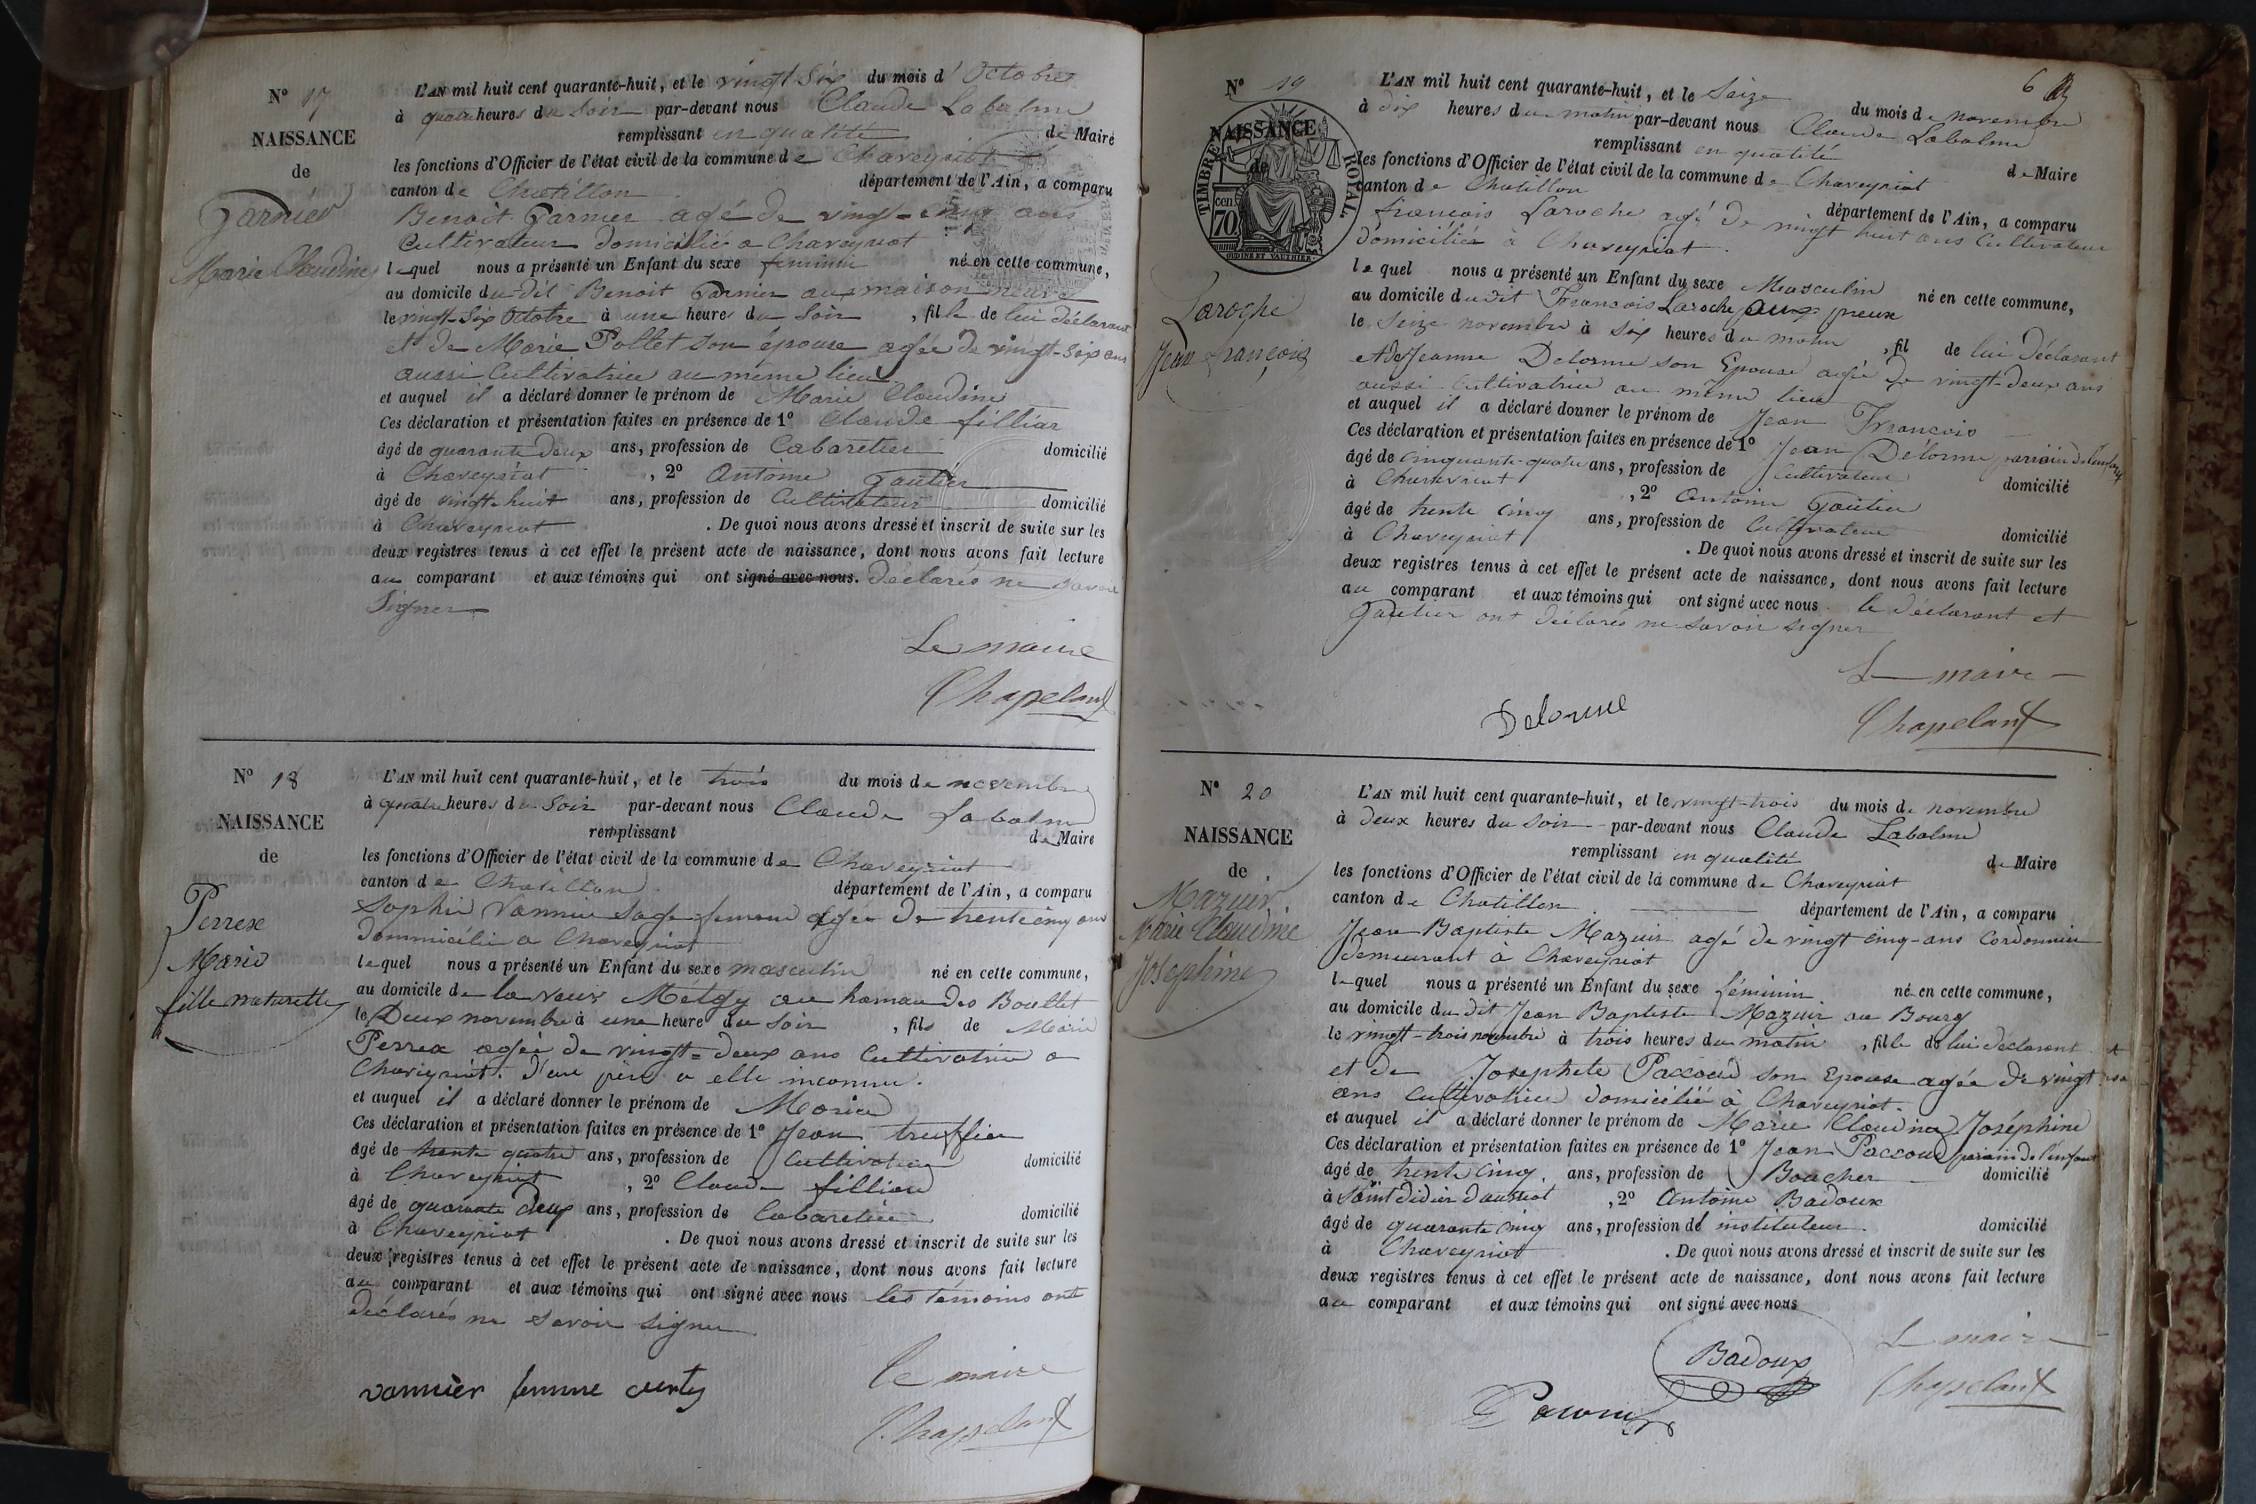 N° 17
NAISSANCE
de
Garnier
Marie Claudine
L'AN mil huit cent quarante-huit, et le vingt six du mois d'Octobre
à quatre heures du soir par-devant nous Claude Labalme
remplissant en qualité de Maire
les fonctions d'Officier de l'état civil de la commune de Chaveyriat
canton de Chatillon département de l'Ain, a comparu
Benoit Garnier agé de vingt-cinq ans
Cultivateur domicilié a Chaveyriat
lequel nous a présenté un Enfant du sexe feminin né en cette commune,
au domicile du dit Benoit Garnier aux maison neuve
le vingt-six Octobre à une heure du soir, fille de lui déclarant
et de Marie Pollet son épouse agée de vingt-six ans
aussi Cultivatrice au même lieu
et auquel il a déclaré donner le prénom de Marie Claudine
Ces déclaration et présentation faites en présence de 1° Claude filliar
âgé de quarante deux ans, profession de Cabaretier domicilié
à Chaveyriat, 2° Antoine Gautier
âgé de vingt-huit ans, profession de Cultivateur domicilié
à Chaveyriat. De quoi nous avons dressé et inscrit de suite sur les
deux registres tenus à cet effet le présent acte de naissance, dont nous avons fait lecture
au comparant et aux témoins qui ont signé avec nous. déclarés ne savoir
signer
Le maire
Chapeland
N° 18
NAISSANCE
de
Perrex
Marie
fille naturelle
L'AN mil huit cent quarante-huit, et le trois du mois de novembre
à quatre heures du soir par-devant nous Claude Labalme
remplissant de Maire
les fonctions d'Officier de l'état civil de la commune de Chaveyriat
canton de Chatillon département de l'Ain, a comparu
Sophie Vannier Sage femme agée de trente cinq ans
dommicilié a Chaveyriat
lequel nous a présenté un Enfant du sexe masculin né en cette commune,
au domicile de la veuve au hamau des
le Deux novembre à une heure du soir, fils de Marie
Perrex agée de vingt-deux ans Cultivatrice a
Chaveyriat. d'un père a elle inconnu.
et auquel il a déclaré donner le prénom de Marie
Ces déclaration et présentation faites en présence de 1° Jean truffier
âgé de trente quatre ans, profession de Cultivateur domicilié
à Chaveyriat, 2° Claude filliard
âgé de quarante deux ans, profession de Cabaretier domicilié
à Chaveyriat. De quoi nous avons dressé et inscrit de suite sur les
deux registres tenus à cet effet le présent acte de naissance, dont nous avons fait lecture
au comparant et aux témoins qui ont signé avec nous les témoins ont
déclarés ne savoir signer
vannier femme curty
le maire
Chapeland
6
N° 19
NAISSANCE
de
TIMBRE ROYAL.
cen
70
OUDINE ET VAUTHIER.
Laroche
Jean françois
L'AN mil huit cent quarante-huit, et le Seize du mois de novembre
à dix heures du matin par-devant nous Claude Labalme
remplissant en qualité de Maire
les fonctions d'Officier de l'état civil de la commune de Chaveyriat
canton de Chatillon département de l'Ain, a comparu
françois Laroche agé de vingt huit ans Cultivateur
domicilié à Chaveyriat.
lequel nous a présenté un Enfant du sexe Masculin né en cette commune,
au domicile dudit François Laroche aux preux
le seize novembre à six heures du matin, fil de lui déclarant
et de Jeanne Delorme son Epouse agée de vingt-deux ans
aussi Cultivatrice au même lieu
et auquel il a déclaré donner le prénom de Jean François
Ces déclaration et présentation faites en présence de 1° Jean Delorme parrain de l'enfant
âgé de cinquante-quatre ans, profession de Cultivateur domicilié
à Chaveyriat, 2° Antoine Gautier
âgé de trente cinq ans, profession de Cultivateur domicilié
à Chaveyriat. De quoi nous avons dressé et inscrit de suite sur les
deux registres tenus à cet effet le présent acte de naissance, dont nous avons fait lecture
au comparant et aux témoins qui ont signé avec nous. le déclarant et
Gautier ont déclarés ne savoir signer
Le maire
Delorme
Chapeland
N° 20
NAISSANCE
de
Mazuir
Marie Claudine
Josephine
L'AN mil huit cent quarante-huit, et le vingt-trois du mois de novembre
à deux heures du soir par-devant nous Claude Labalme
remplissant en qualité de Maire
les fonctions d'Officier de l'état civil de la commune de Chaveyriat
canton de Chatillon département de l'Ain, a comparu
Jean Baptiste Mazuir agé de vingt cinq-ans Cordonnier
demeurant à Chaveyriat
lequel nous a présenté un Enfant du sexe féminin né en cette commune,
au domicile du dit Jean Baptiste Mazuir au Bourg
le vingt-trois novembre à trois heures du matin, fille de lui déclarant et
et de Josephete Paccoud son Epouse agée de vingt
ans Cultivatrice domiciliée à Chaveyriat.
et auquel il a déclaré donner le prénom de Marie Claudine Joséphine
Ces déclaration et présentation faites en présence de 1° Jean Paccoud parain de l'enfant
âgé de trente cinq. ans, profession de Boucher domicilié
à Saint Didier d'aussiat, 2° Antoine Badoux
âgé de quarante cinq ans, profession de instituteur. domicilié
à Chaveyriat. De quoi nous avons dressé et inscrit de suite sur les
deux registres tenus à cet effet le présent acte de naissance, dont nous avons fait lecture
au comparant et aux témoins qui ont signé avec nous
Le maire
Badoux
Chapeland